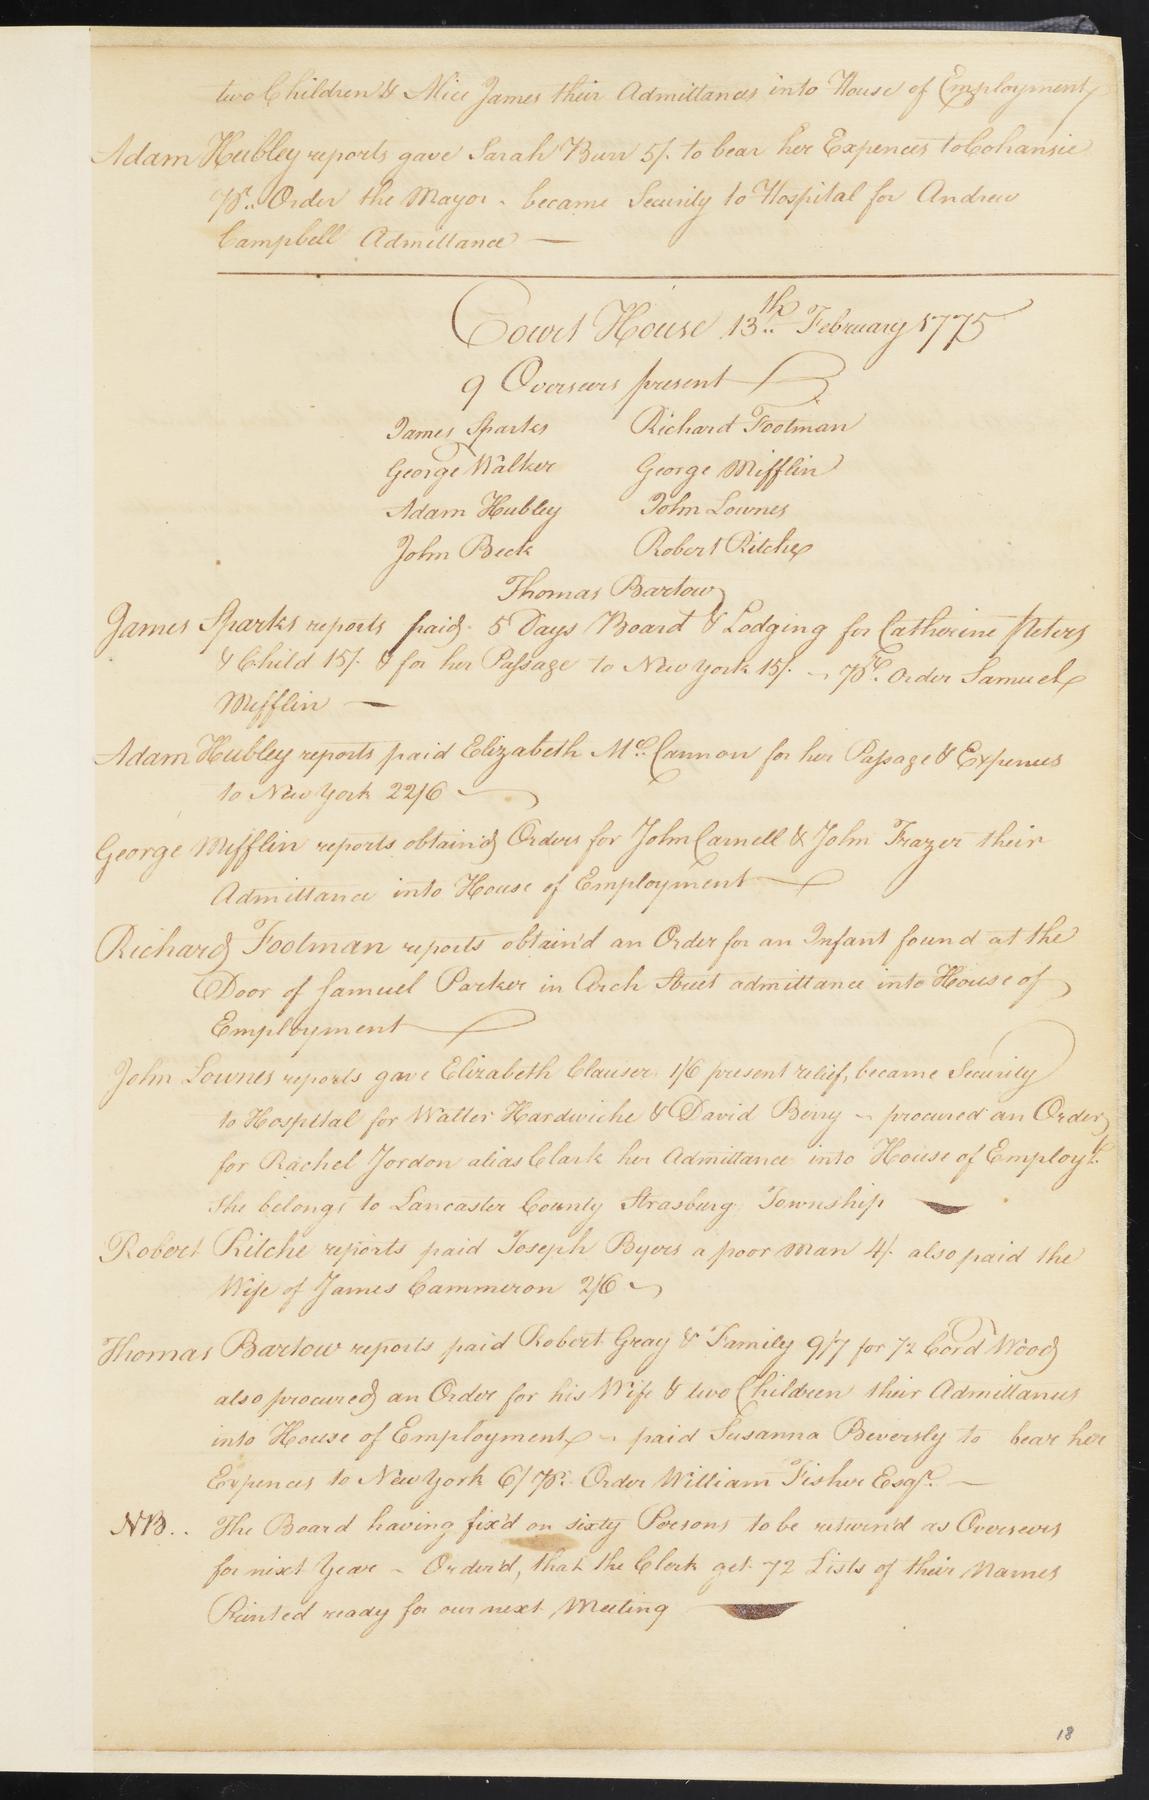 two Children & Alice James their Admittances into House of Employment
Adam Hubley reports gave Sarah Burr 5/. to bear her Expences to Cohansie
Pr. Order the Mayor - became Security to Hospital for Andrew
Campbell Admittance —
Court House 13th February 1775
9 Overseers present
James Sparks Richard Footman
George Walker George Mifflin
Adam Hubley John Lownes
John Beck Robert Ritche
Thomas Bartow
James Sparks reports paid 5 Days Board & Lodging for Catherine Peters
& Child 15/. & for her Passage to New York 15/. - Pr. Order Samuel
Mifflin —
Adam Hubley reports paid Elizabeth Mc. Cannon for her Passage & Expences
to New York 22/6
George Mifflin reports obtain'd Orders for John Carnell & John Frazer their
Admittance into House of Employment
Richard Footman reports obtain'd an Order for an Infant found at the
Door of Samuel Parker in Arch Street admittance into House of
Employment
John Lownes reports gave Elizabeth Clauser 1/6 present relief, became Security
to Hospital for Walter Hardwiche & David Berry - procured an Order
for Rachel Jordon alias Clark her Admittance into House of Employt.
She belongs to Lancaster County Strasburg Township
Robert Ritche reports paid Joseph Byers a poor Man 4/. also paid the
Wife of James Cammeron 2/6
Thomas Bartow reports paid Robert Gray & Family 9/7 for 1/2 Cord Wood
also procured an Order for his Wife & two Children their Admittances
into House of Employment - paid Susanna Beversly to bear her
Expences to New York 6/ Pr. Order William Fisher Esqr. —
NB.. The Board having fix'd on sixty Persons to be return'd as Overseers
for next Year - Order'd, that the Clerk get 72 Lists of their Names
Printed ready for our next Meeting
18